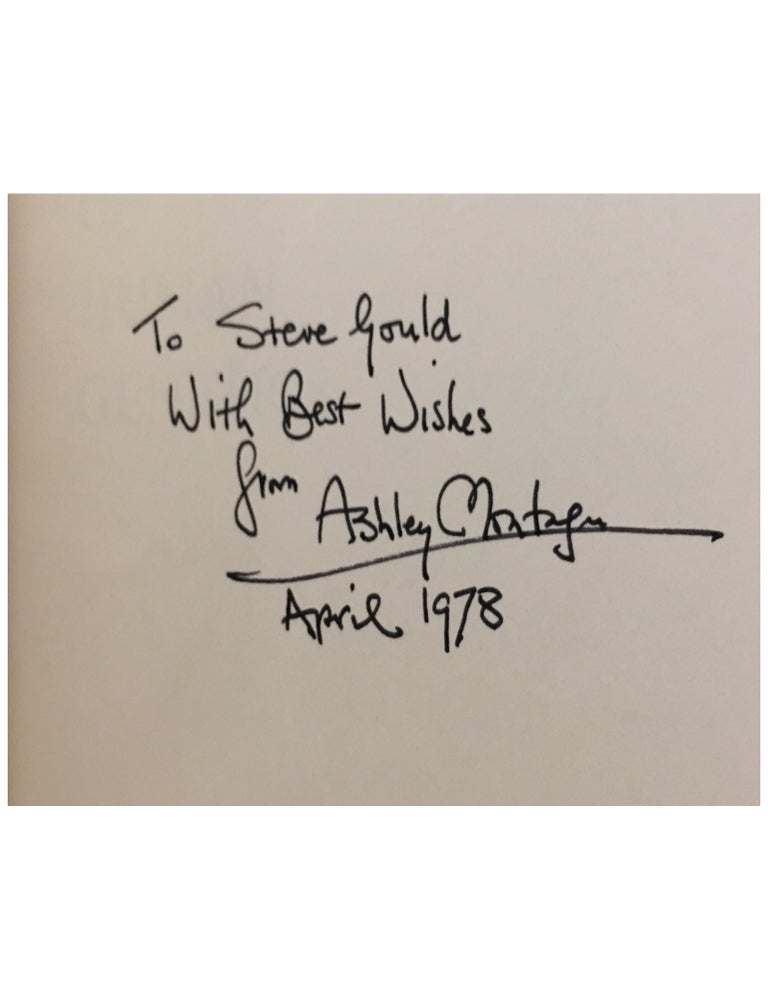 To Steve Gould
With Best Wishes
from Ashley Montagu
April 1978